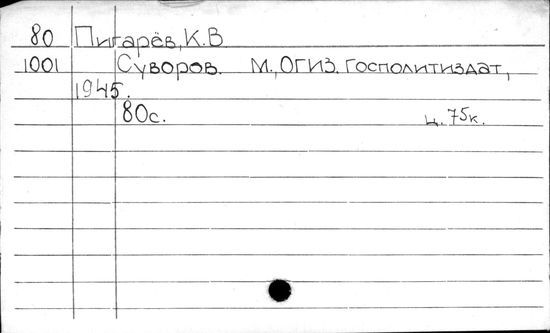 80 Пигарёв, К.В
1001 Суворов. М., ОГИЗ. Госполитиздат,
1945.
80с. ц. 75к.